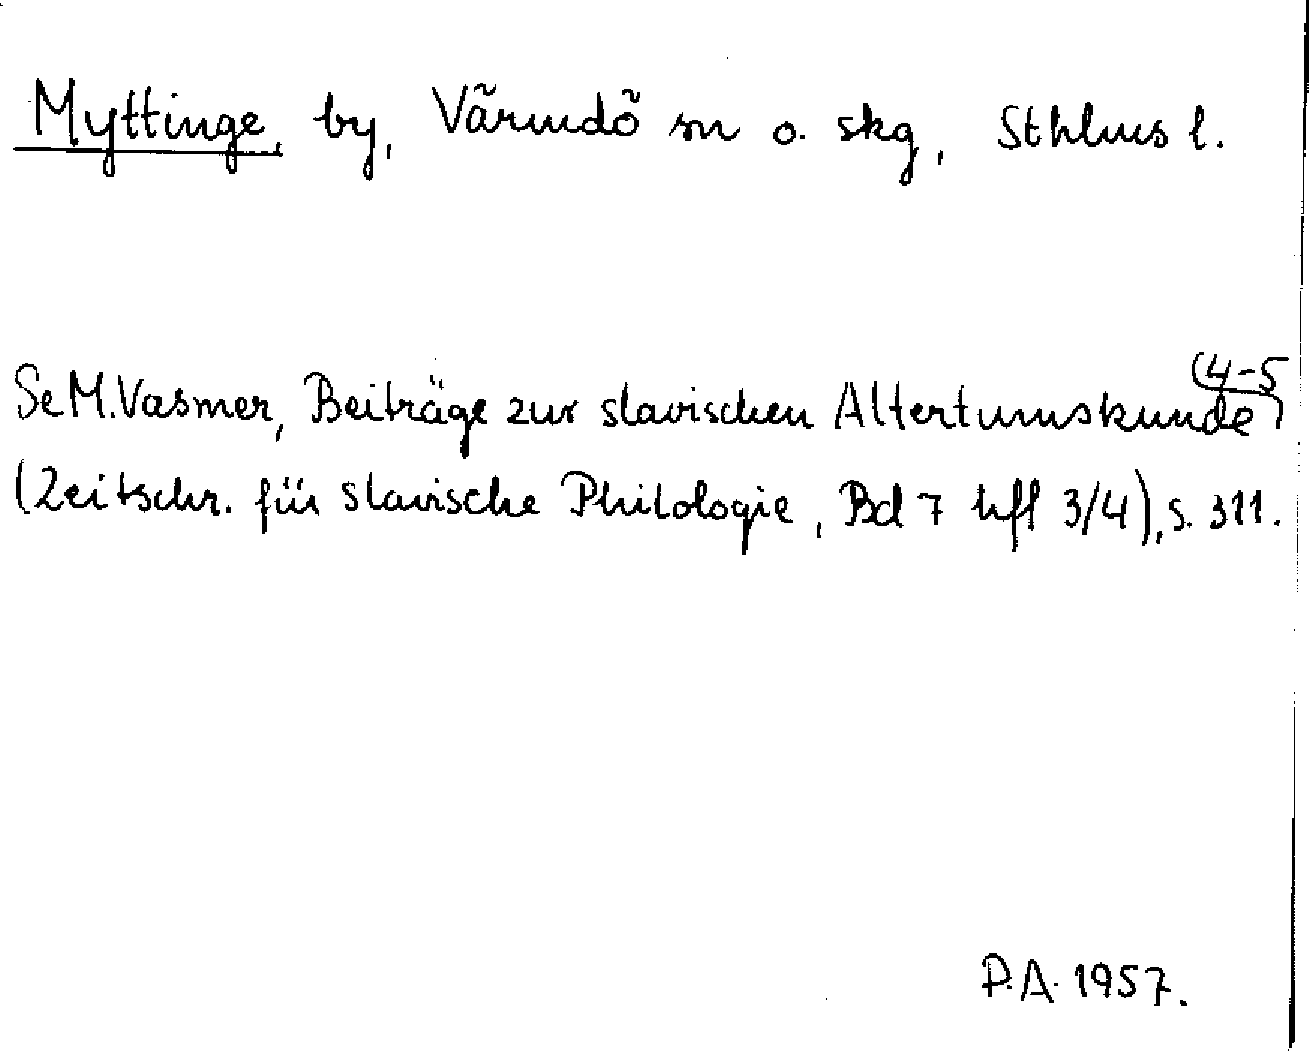 Myttinge, by, Värmdö sn o. skg, Sthlms l.
Se M. Vasmer, Beiträge zur slavischen Altertumskunde (4-5)
(Zeitschr. für slavische Philologie, Bd 7 hft 3/4), s. 311.
P.A. 1957.